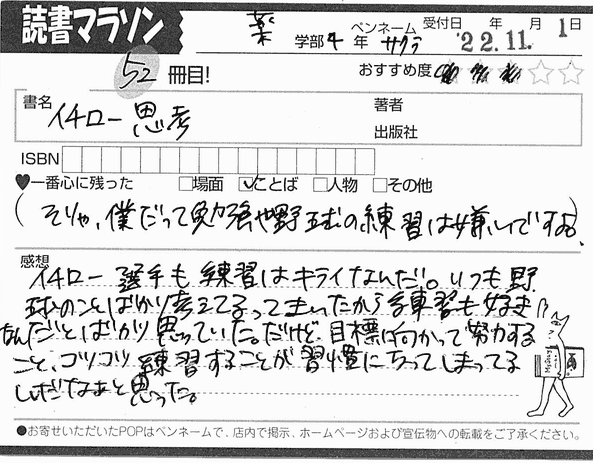 読書マラソン
薬 学部 4 年 ペンネーム サクラ 受付日 '22.年11.月1日
52 冊目!
おすすめ度
書名 イチロー思考 著者
出版社
ISBN
♥一番心に残った □場面 ☑ことば □人物 □その他
(そりゃ、僕だって勉強や野球の練習は嫌いですよ。)
感想
イチロー選手も練習はキライなんだ。いつも野
球のことばかり考えてるって思いたから練習も好き
なんだとばかり思っていた。だけど、目標に向かって努力する
こと、コツコツ練習することが習慣になってしまってる
んだなぁと思った。
●お寄せいただいたPOPはペンネームで、店内で掲示、ホームページおよび宣伝物への転載をご了承ください。